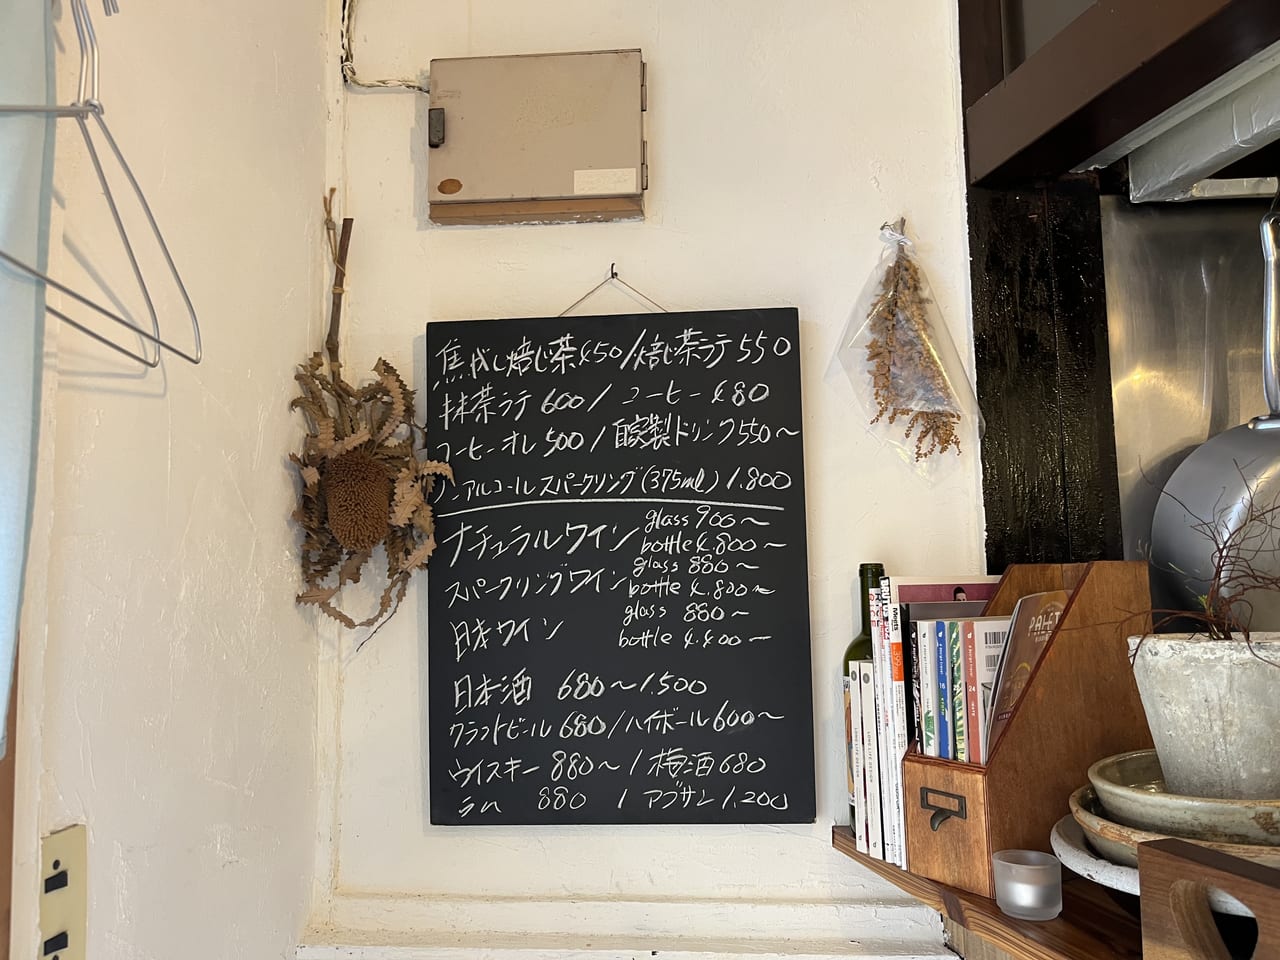 焦がし焙じ茶450/焙じ茶ラテ550
抹茶ラテ 600/コーヒー480
コーヒーオレ500/自家製ドリンク550~
ノンアルコールスパークリング(375ml)1.800
ナチュラルワイン glass 900~
bottle 4.800~
スパークリングワイン glass 880~
bottle 4.800~
日本ワイン glass 880~
bottle 4.400~
日本酒 680~1.500
クラフトビール680/ハイボール600~
ウイスキー 880~/梅酒680
ラム 880 / アブサン 1.200